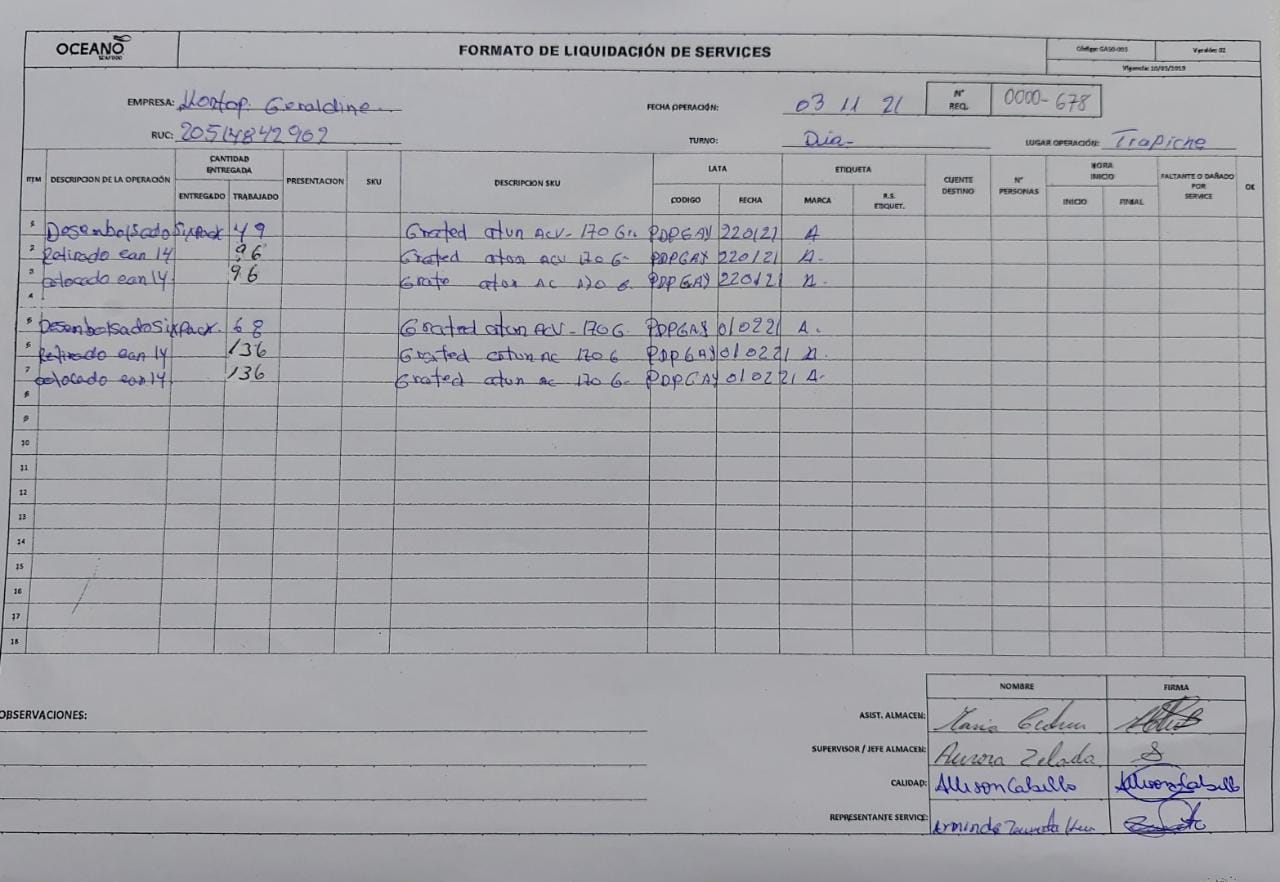 OCEANO
SEAFOOD
FORMATO DE LIQUIDACIÓN DE SERVICES
Código: GASO-005
Versión: 02
Vigencia: 10/05/2019
EMPRESA: Montap. Geraldine
FECHA OPERACIÓN: 03 11 21
N° REQ. 0000-678
RUC: 20514842902
TURNO: Dia-
LUGAR OPERACIÓN: Trapiche
ITM DESCRIPCION DE LA OPERACIÓN CANTIDAD ENTREGADA PRESENTACION SKU DESCRIPCION SKU LATA ETIQUETA CLIENTE DESTINO N° PERSONAS HORA INICIO FALTANTE O DAÑADO POR SERVICE OK
ENTREGADO TRABAJADO CODIGO FECHA MARCA R.S. ETIQUET. INICIO FINAL
1 Desenbolsado Sixpack 49 Grated atun ACV- 170 Gr. PDPGAY 220121 A
2 Retirado ean 14 96 Grated atun acv 170 G- PDPGAY 220121 A.
3 colocado ean 14. 96 Grate atun AC 170 G. PDPGAY 220121 A.
4
5 Desenbolsado Sixpack. 68 Grated atun ACV- 170 G. PDPGAY 010221 A.
6 Retirado ean 14 136 Grated atun AC 170 G PDPGAY 010221 A.
7 colocado ean 14. 136 Grated atun ac 170 G- PDPGAY 010221 A-
8
9
10
11
12
13
14
15
16
17
18
NOMBRE FIRMA
OBSERVACIONES:
ASIST. ALMACEN: Maria
SUPERVISOR / JEFE ALMACEN: Aurora Zelada
CALIDAD: Allison Cabello Allison Cabello
REPRESENTANTE SERVICE: Armindo